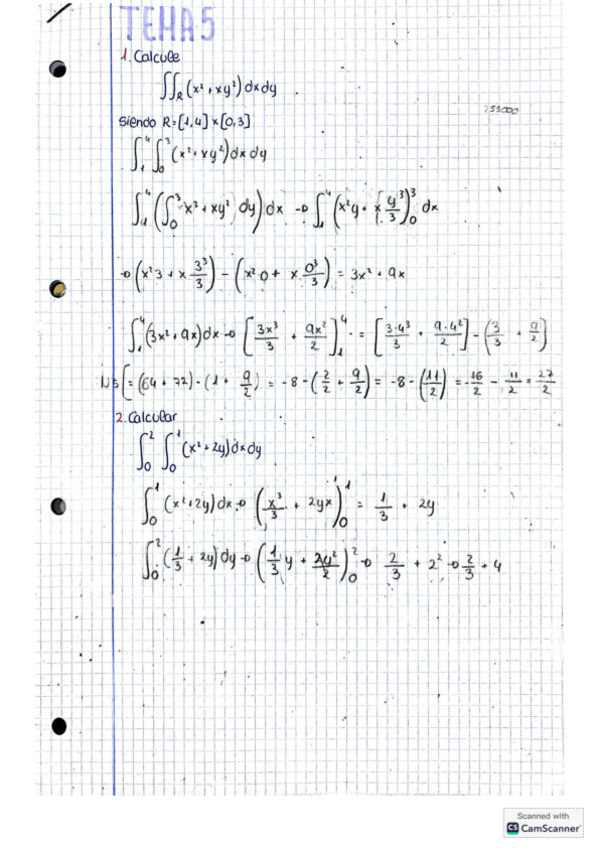 TEMA 5
1. Calcule
∬_R (x² + xy²) dxdy
Siendo R=[1,4]×[0,3]
∫₁⁴ ∫₀³ (x² + xy²) dx dy
∫₁⁴ (∫₀³ x² + xy² dy) dx → ∫₁⁴ (x²y + x y³/3)₀³ dx
→ (x²3 + x 3³/3) - (x²·0 + x 0³/3) = 3x² + 9x
∫₁⁴ (3x² + 9x) dx → [3x³/3 + 9x²/2]₁⁴ = [3·4³/3 + 9·4²/2] - (3/3 + 9/2)
= (64 + 72) - (1 + 9/2) = -8 - (2/2 + 9/2) = -8 - (11/2) = -16/2 - 11/2 = 27/2
2. Calcular
∫₀² ∫₀¹ (x² + 2y) dxdy
∫₀¹ (x² + 2y) dx → (x³/3 + 2yx)₀¹ = 1/3 + 2y
∫₀² (1/3 + 2y) dy → (1/3 y + 2y²/2)₀² → 2/3 + 2² → 2/3 + 4
Scanned with
CS CamScanner